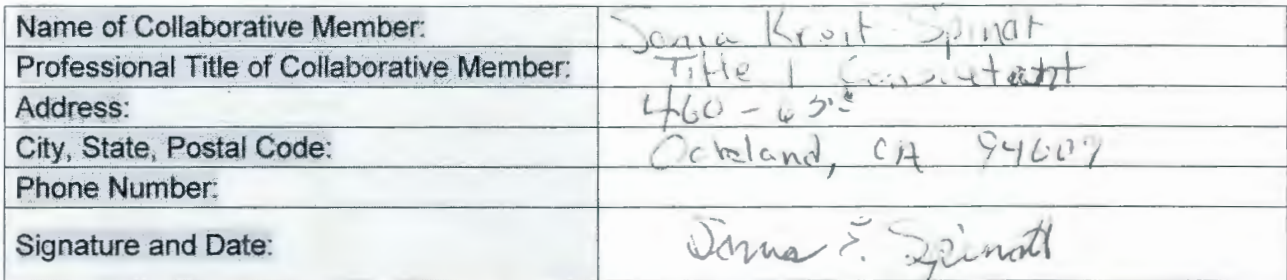 Name of Collaborative Member: Kroit Spinat
Professional Title of Collaborative Member: Title 1 Consultant
Address: 460 -
City, State, Postal Code: Oakland, CA 94609
Phone Number:
Signature and Date: Spinatt